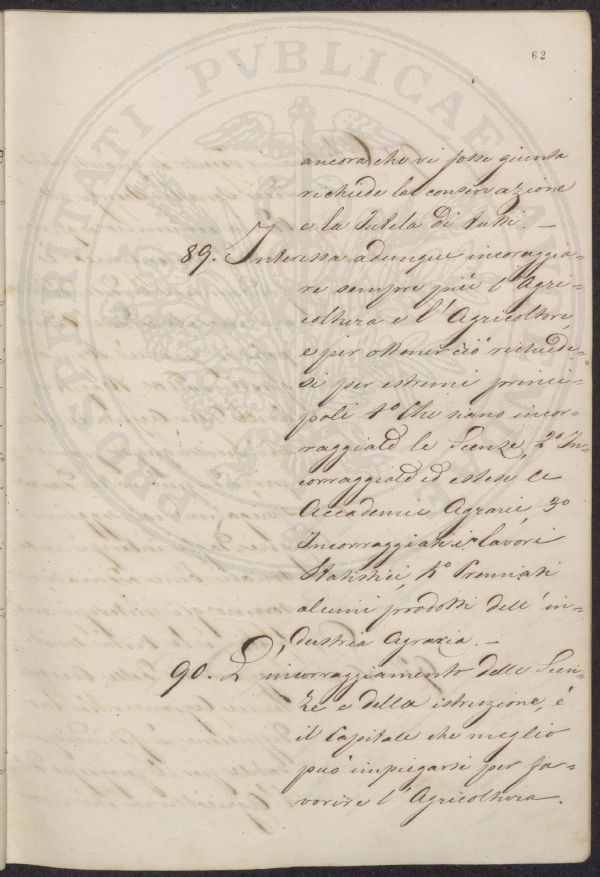 62
ancora, che vi fosse giunta
richiede la conservazione
e la Tutela di tutti. —
89. Interessa adunque incoraggia-
re sempre più l'Agri-
coltura e l'Agricoltore,
e per ottener ciò richiede-
si per estremi princi-
pali 1° Che siano incor-
raggiate le Scienze, 2° In-
corraggiate ed estese le
Accademie Agrarie, 3°
Incorraggiati i lavori
Statistici, 4° Premiati
alcuni prodotti dell'in-
dustria Agraria. —
90. L'incorraggiamento delle Scien-
ze e della istruzione, è
il Capitale che meglio
può impiegarsi per fa-
vorire l'Agricoltura.
PROSPERITATI PVBLICAE